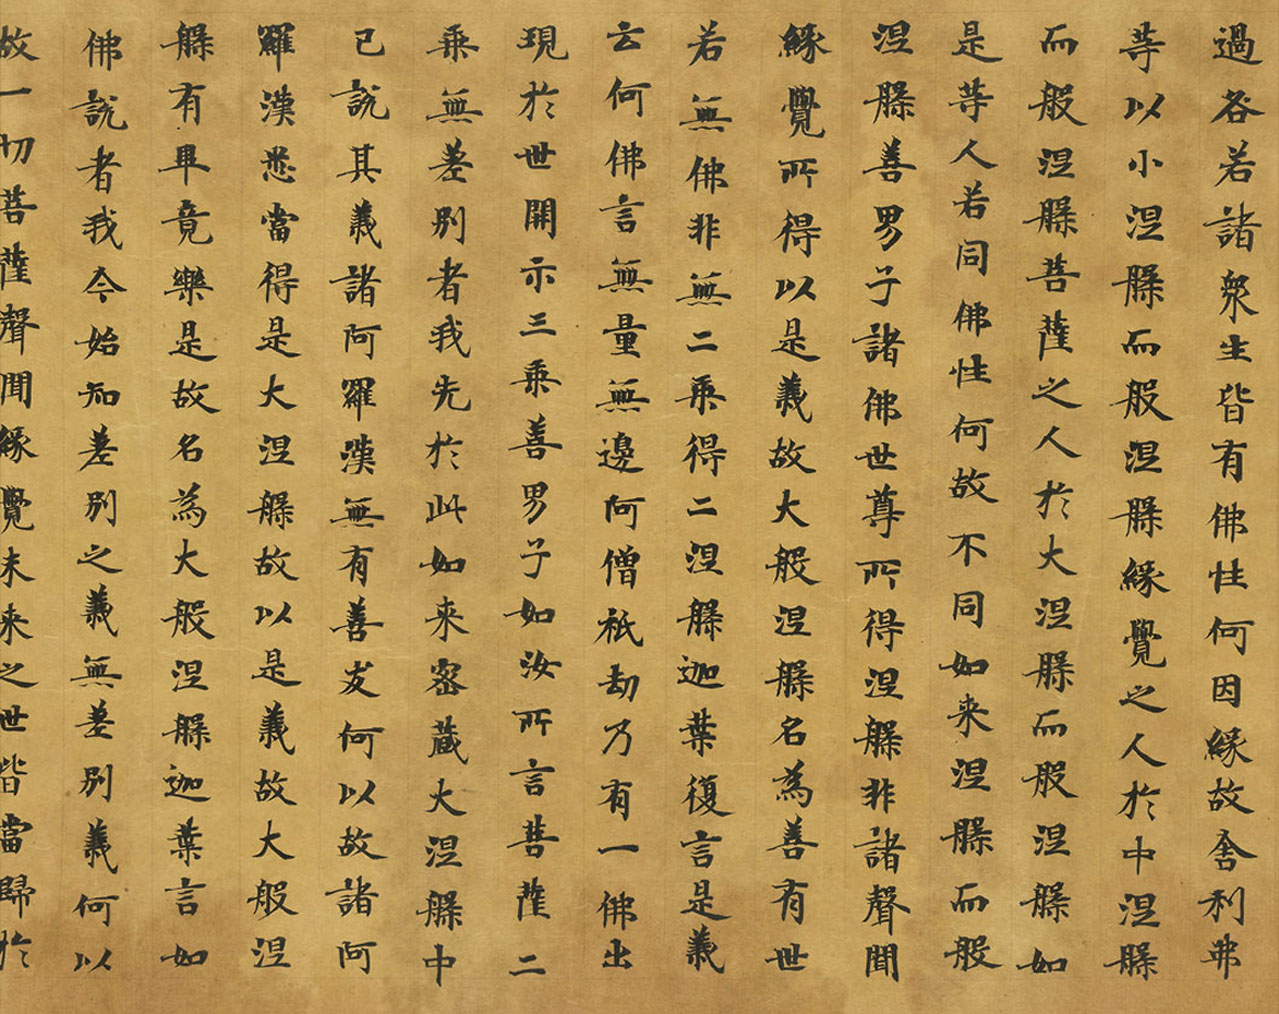 過咎若諸衆生皆有佛性何因緣故舍利弗
等以小涅槃而般涅槃緣覺之人於中涅槃
而般涅槃菩薩之人於大涅槃而般涅槃如
是等人若同佛性何故不同如来涅槃而般
涅槃善男子諸佛世尊所得涅槃非諸聲聞
緣覺所得以是義故大般涅槃名為善有世
若無佛非無二乘得二涅槃迦葉復言是義
云何佛言無量無邊阿僧祇劫乃有一佛出
現於世開示三乘善男子如汝所言菩薩二
乘無差別者我先於此如来密藏大涅槃中
已說其義諸阿羅漢無有善有何以故諸阿
羅漢悉當得是大涅槃故以是義故大般涅
槃有畢竟樂是故名為大般涅槃迦葉言如
佛說者我今始知差別之義無差別義何以
故一切菩薩聲聞緣覺未来之世皆當歸於